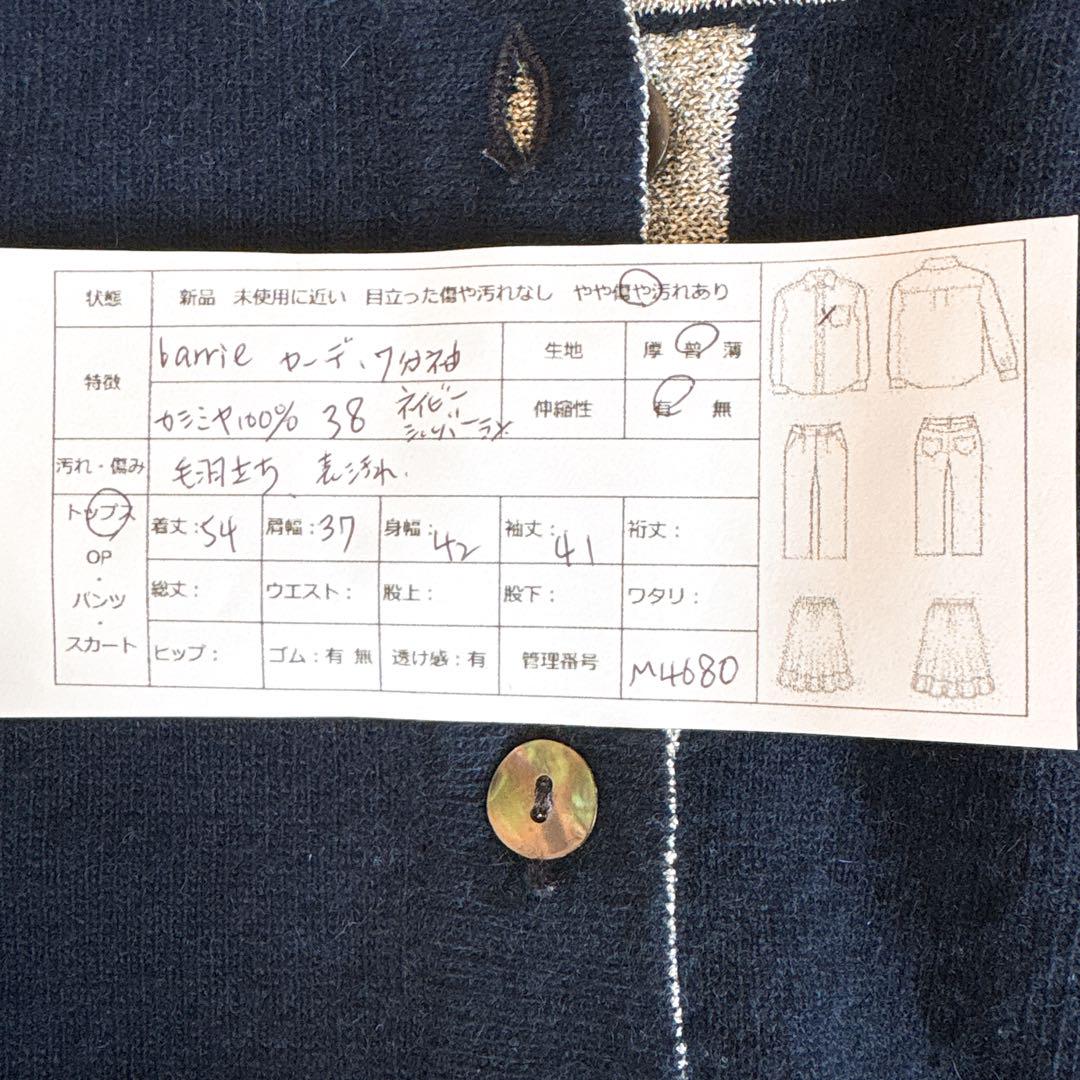 状態 新品 未使用に近い 目立った傷や汚れなし やや傷や汚れあり
特徴 barrie カーデ、7分袖 生地 厚 普 薄
カシミヤ100% 38 ネイビー シルバーラメ 伸縮性 有 無
汚れ・傷み 毛羽立ち、表汚れ.
トップス 着丈:54 肩幅:37 身幅:42 袖丈:41 裄丈:
OP
・
パンツ 総丈: ウエスト: 股上: 股下: ワタリ:
・
スカート ヒップ: ゴム:有 無 透け感:有 管理番号 M4680